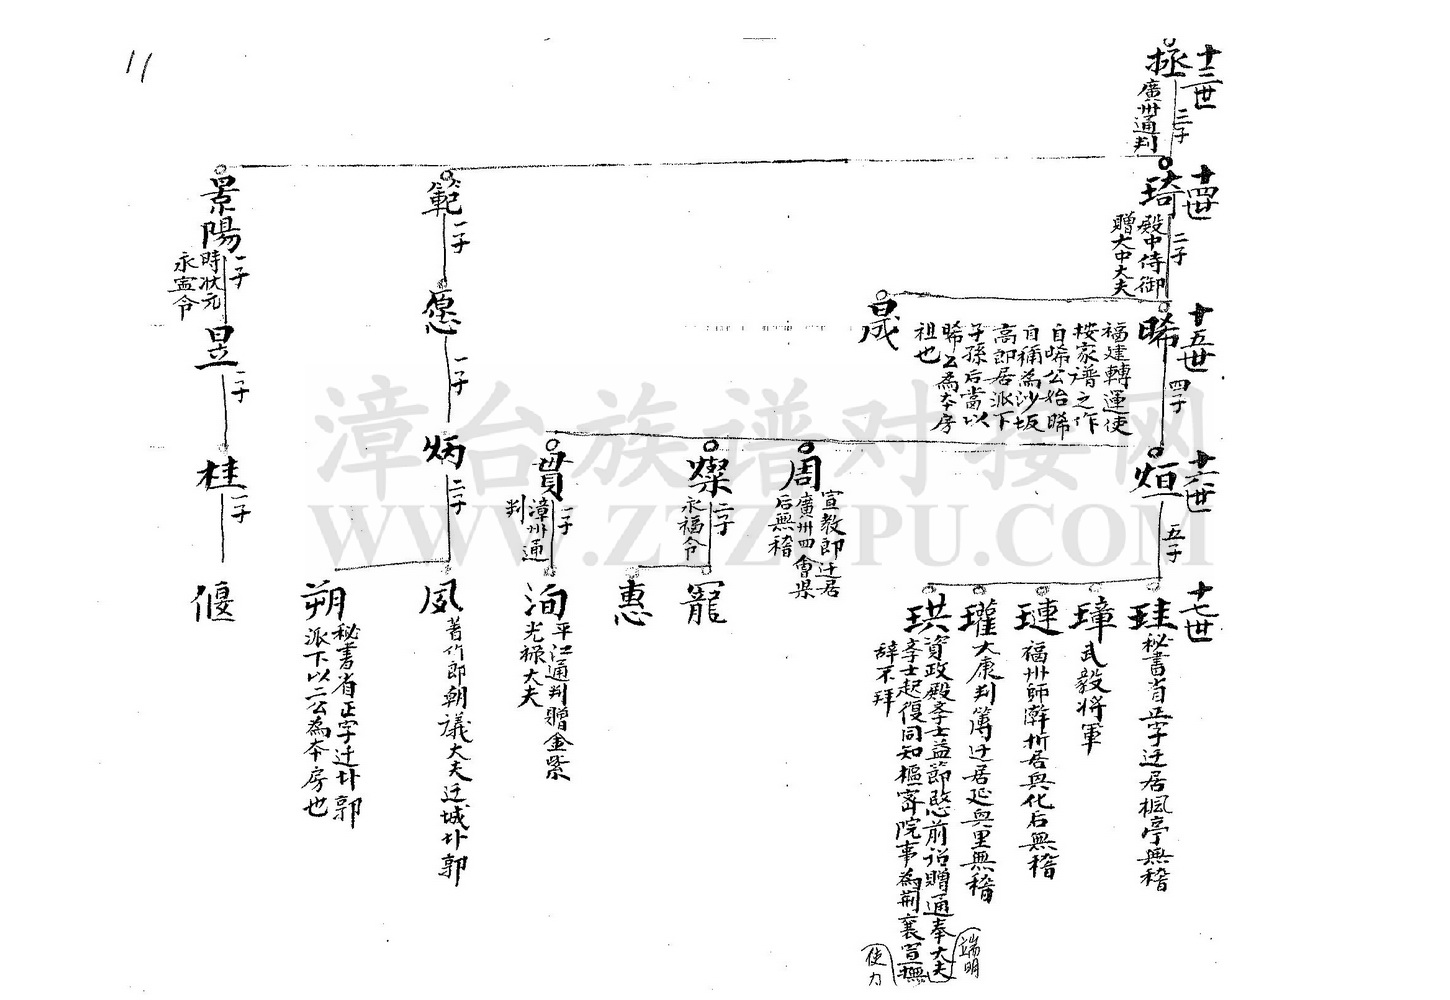 11
十三世
拯
廣州通判
三子
十四世
琦
殿中侍御
贈大中大夫
二子
範
一子
景陽
時狀元
永寧令
一子
十五世
晞
福建轉運使
按家譜之作
自晞公始晞
自稱為沙坂
高即居派下
子孫后當以
晞公為本房
祖也
四子
晟
愿
一子
昱
一子
十六世
烜
五子
周
宣教郎迁居
廣州四會縣
后無稽
燦
永福令
二子
貫
漳州通
判
一子
炳
二子
桂
一子
十七世
珪
秘書省正字迁居楓亭無稽
璋
武毅將軍
璉
福州師幹析居興化后無稽
瓘
大康判簿迁居延興里無稽
珙
資政殿李士益節愍前詔贈通奉大夫
李士起復同知樞密院事為荊襄宣撫
辞不拜
端明
使力
寵
惠
洵
平江通判贈金紫
光祿大夫
夙
著作郎朝議大夫迁城圤郭
朔
秘書省正字迁圤郭
派下以二公為本房也
偃
漳台族谱对接网
WWW.ZTZUPU.COM